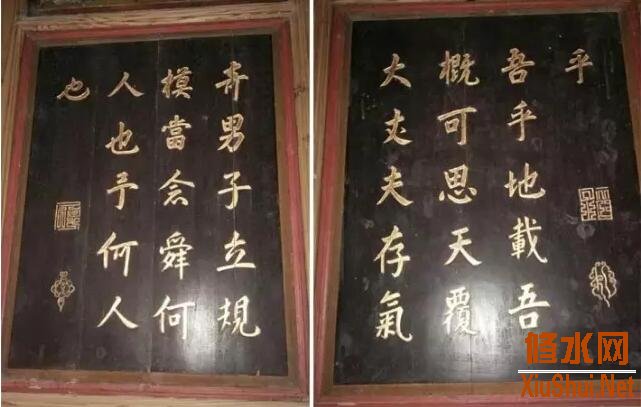 奇男子立規
模當念舜何
人也予何人
也
大丈夫存氣
概可思天覆
吾乎地載吾
乎
修水网
XiuShui.Net